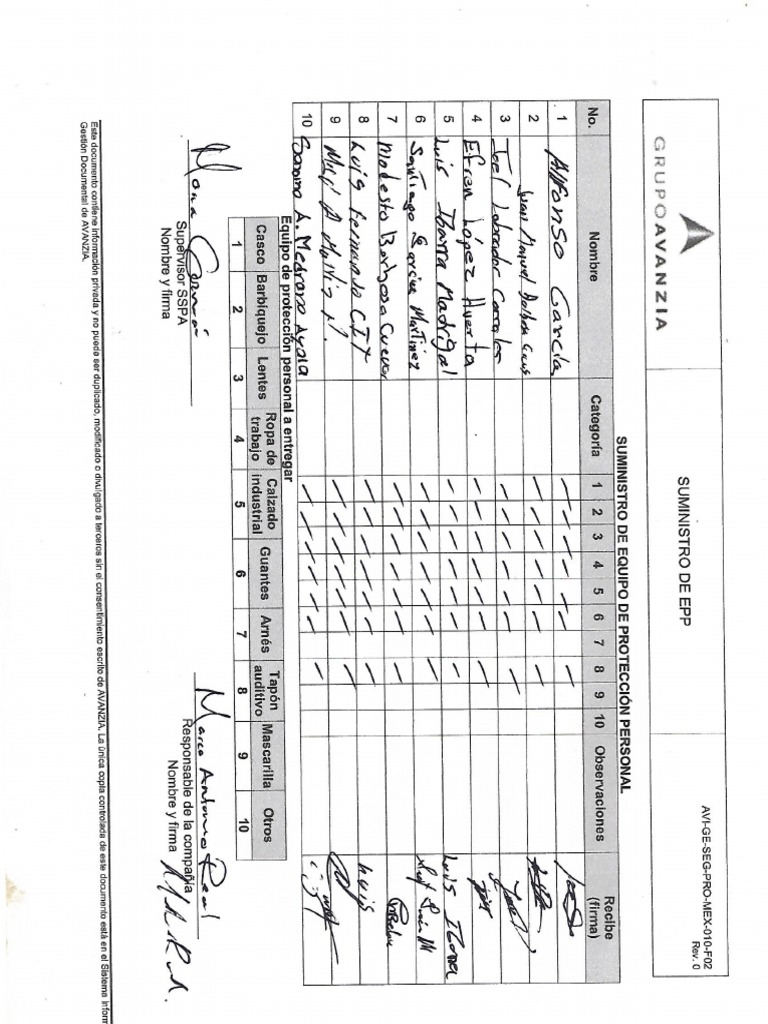 GRUPOAVANZIA
SUMINISTRO DE EPP
AVI-GE-SEG-PRO-MEX-010-F02
Rev. 0
SUMINISTRO DE EQUIPO DE PROTECCIÓN PERSONAL
No. Nombre Categoría 1 2 3 4 5 6 7 8 9 10 Observaciones Recibe (firma)
1 Alfonso García
2 Juan Manuel
3 Joel Labrador Corrales
4 Efren López Huerta
5 Luis Ibarra Madrigal Luis Ibarra
6 Santiago García Martinez
7 Modesto Barbosa Cuevas
8 Luis Fernando C.I.Y Luis
9
10 A. Medrano Ayala
Equipo de protección personal a entregar
Casco Barbiquejo Lentes Ropa de trabajo Calzado industrial Guantes Arnés Tapón auditivo Mascarilla Otros
1 2 3 4 5 6 7 8 9 10
Marco Antonio Real
Supervisor SSPA
Nombre y firma
Responsable de la compañía
Nombre y firma
Este documento contiene información privada y no puede ser duplicado, modificado o divulgado a terceros sin el consentimiento escrito de AVANZIA. La única copia controlada de este documento está en el Sistema Inform
Gestión Documental de AVANZIA.